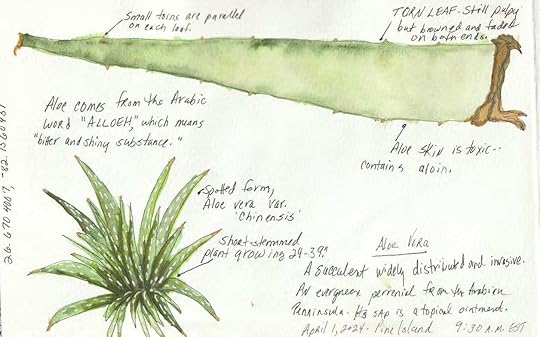 Small torns are parallel
on each leaf.
TORN LEAF - Still pulpy
but browned and faded
on both ends.
Aloe comes from the Arabic
word "ALLOEH," which means
"bitter and shiny substance."
Aloe skin is toxic--
contains aloin.
Spotted form,
Aloe vera var.
'Chinensis'
Short-stemmed
plant growing 24-39".
Aloe Vera
A succulent widely distributed and invasive.
An evergreen perennial from the Arabian
Peninsula. Its sap is a topical ointment.
April 1, 2024 - Pine Island 9:30 A.M. EST